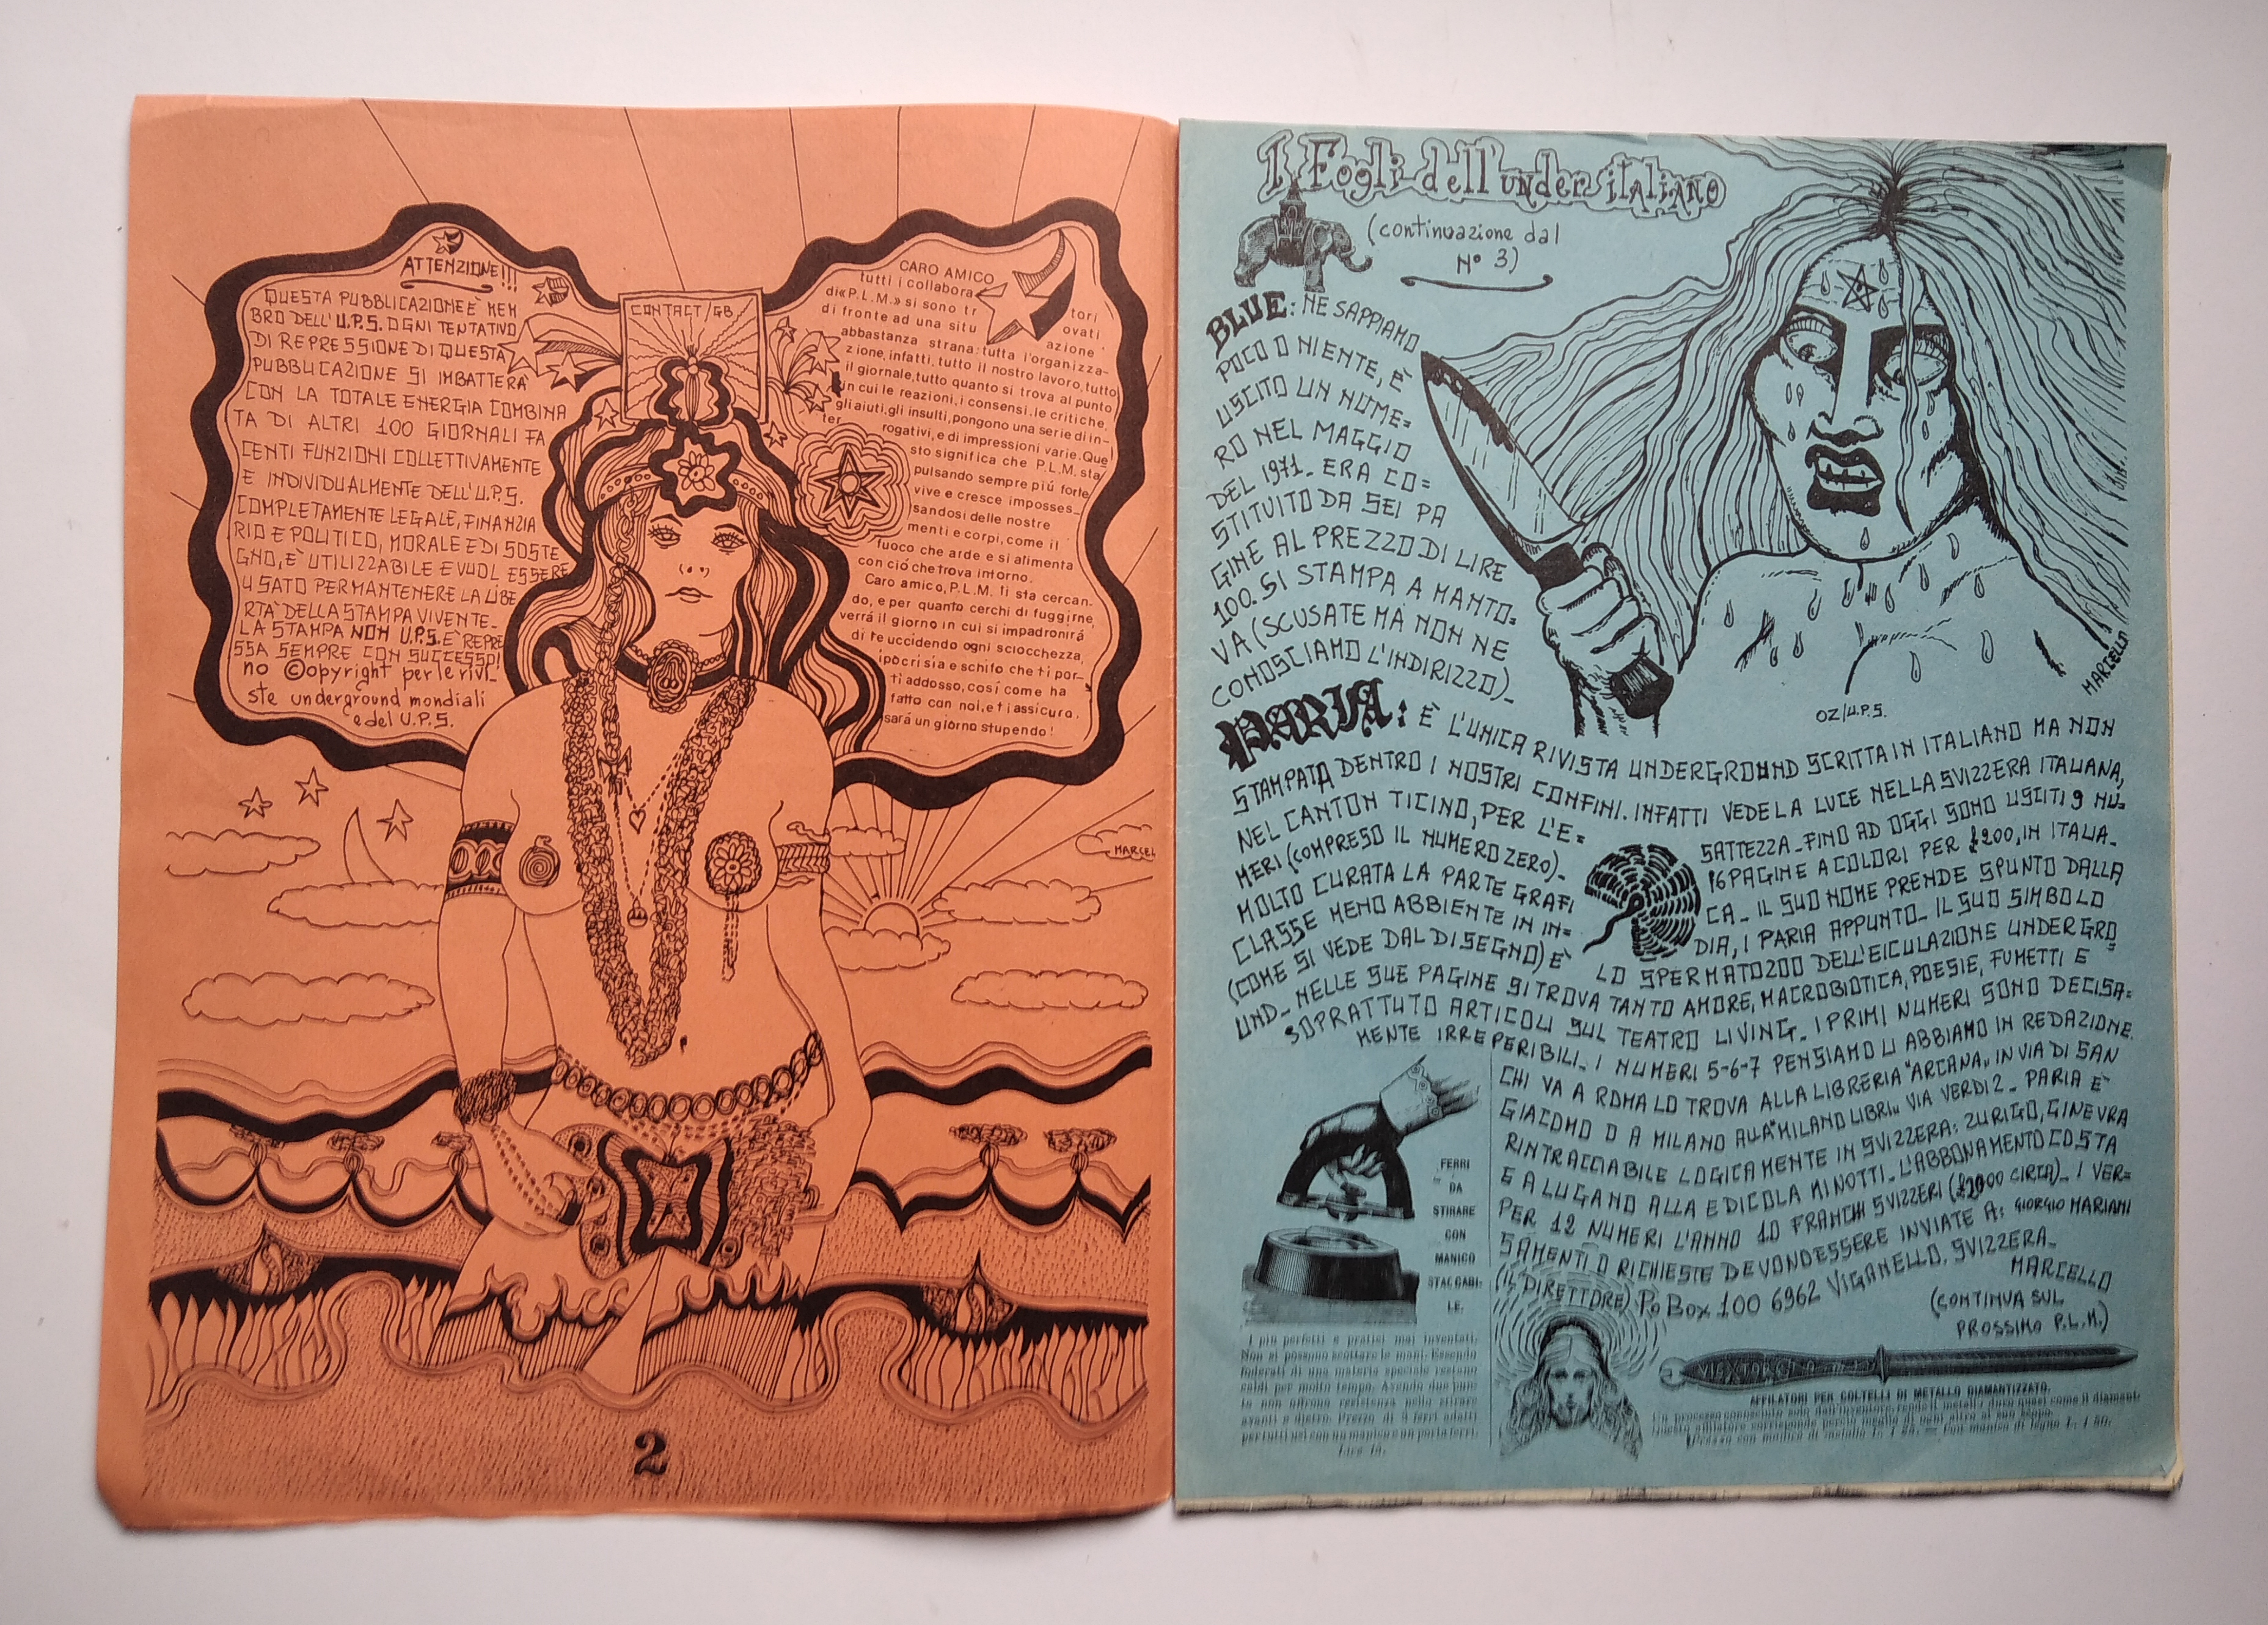 ATTENZIONE!!!
QUESTA PUBBLICAZIONE È MEM
BRO DELL'U.P.S. OGNI TENTATIVO
DI REPRESSIONE DI QUESTA
PUBBLICAZIONE SI IMBATTERA'
CON LA TOTALE ENERGIA COMBINA
TA DI ALTRI 100 GIORNALI FA
CENTI FUNZIONI COLLETTIVAMENTE
E INDIVIDUALMENTE DELL'U.P.S.
COMPLETAMENTE LEGALE, FINANZIA
RIO E POLITICO, MORALE E DI SOSTE
GNO, E' UTILIZZABILE E VUOL ESSERE
USATO PER MANTENERE LA LIBE
RTA' DELLA STAMPA VIVENTE_
LA STAMPA NON U.P.S. E' REPRE
SSA SEMPRE CON SUCCESSO!
no ©opyright per le rivi_
ste underground mondiali
e del U.P.S.
CONTACT/GB
CARO AMICO
tutti i collabora tori
di «P.L.M.» si sono tr ovati
di fronte ad una situ azione
abbastanza strana: tutta l'organizza-
zione, infatti, tutto il nostro lavoro, tutto
il giornale, tutto quanto si trova al punto
in cui le reazioni, i consensi, le critiche,
gli aiuti, gli insulti, pongono una serie di in-
ter rogativi, e di impressioni varie. Que
sto significa che P.L.M. sta
pulsando sempre piú forte
vive e cresce imposses_
sandosi delle nostre
menti e corpi, come il
fuoco che arde e si alimenta
con ció che trova intorno.
Caro amico, P.L.M. ti sta cercan-
do, e per quanto cerchi di fuggirne,
verrá il giorno in cui si impadronirá
di te uccidendo ogni sciocchezza,
ipocrisia e schifo che ti por-
ti addosso, cosí come ha
fatto con noi, e ti assicuro,
sará un giorno stupendo!
MARCEL
2
I Fogli dell'under italiano
(continuazione dal
N° 3)
BLUE: NE SAPPIAMO
POCO O NIENTE, È
USCITO UN NUME=
RO NEL MAGGIO
DEL 1971_ ERA CO=
STITUITO DA SEI PA
GINE AL PREZZO DI LIRE
100. SI STAMPA A MANTO=
VA (SCUSATE MA NON NE
CONOSCIAMO L'INDIRIZZO)_
MARCELLO
OZ/U.P.S.
PARIA: È L'UNICA RIVISTA UNDERGROUND SCRITTA IN ITALIANO MA NON
STAMPATA DENTRO I NOSTRI CONFINI. INFATTI VEDE LA LUCE NELLA SVIZZERA ITALIANA,
NEL CANTON TICINO, PER L'E= SATTEZZA_ FINO AD OGGI SONO USCITI 9 NU=
MERI (COMPRESO IL NUMERO ZERO)_ 16 PAGINE A COLORI PER £200, IN ITALIA_
MOLTO CURATA LA PARTE GRAFI CA_ IL SUO NOME PRENDE SPUNTO DALLA
CLASSE MENO ABBIENTE IN IN= DIA, I PARIA APPUNTO_ IL SUO SIMBOLO
(COME SI VEDE DAL DISEGNO) E' LO SPERMATOZOO DELL'EICULAZIONE UNDERGRO
UND_ NELLE SUE PAGINE SI TROVA TANTO AMORE, MACROBIOTICA, POESIE, FUMETTI E
SOPRATTUTO ARTICOLI SUL TEATRO LIVING_ I PRIMI NUMERI SONO DECISA=
MENTE IRREPERIBILI_ I NUMERI 5-6-7 PENSIAMO LI ABBIAMO IN REDAZIONE.
CHI VA A ROMA LO TROVA ALLA LIBRERIA "ARCANA" IN VIA DI SAN
GIACOMO O A MILANO ALLA "MILANO LIBRI" VIA VERDI 2_ PARIA E'
RINTRACCIABILE LOGICAMENTE IN SVIZZERA: ZURIGO, GINEVRA
E A LUGANO ALLA EDICOLA MINOTTI_ L'ABBONAMENTO COSTA
PER 12 NUMERI L'ANNO 10 FRANCHI SVIZZERI (£2000 CIRCA)_ I VER=
SAMENTI O RICHIESTE DEVONO ESSERE INVIATE A: GIORGIO MARIANI
(IL DIRETTORE) Po Box 100 6962 VIGANELLO. SVIZZERA_
MARCELLO
(CONTINUA SUL
PROSSIMO P.L.M.)
FERRI
DA
STIRARE
CON
MANICO
STACCABI-
LE.
I più perfetti e pratici mai inventati.
Non si possono scottare le mani. Essendo
foderati di una materia speciale restano
caldi per molto tempo. Avendo due punte
non offrono resistenza nello stirare
avanti e dietro. Prezzo di 3 ferri adatti
Lire
AFFILATORI PER COLTELLI DI METALLO DIAMANTIZZATO.